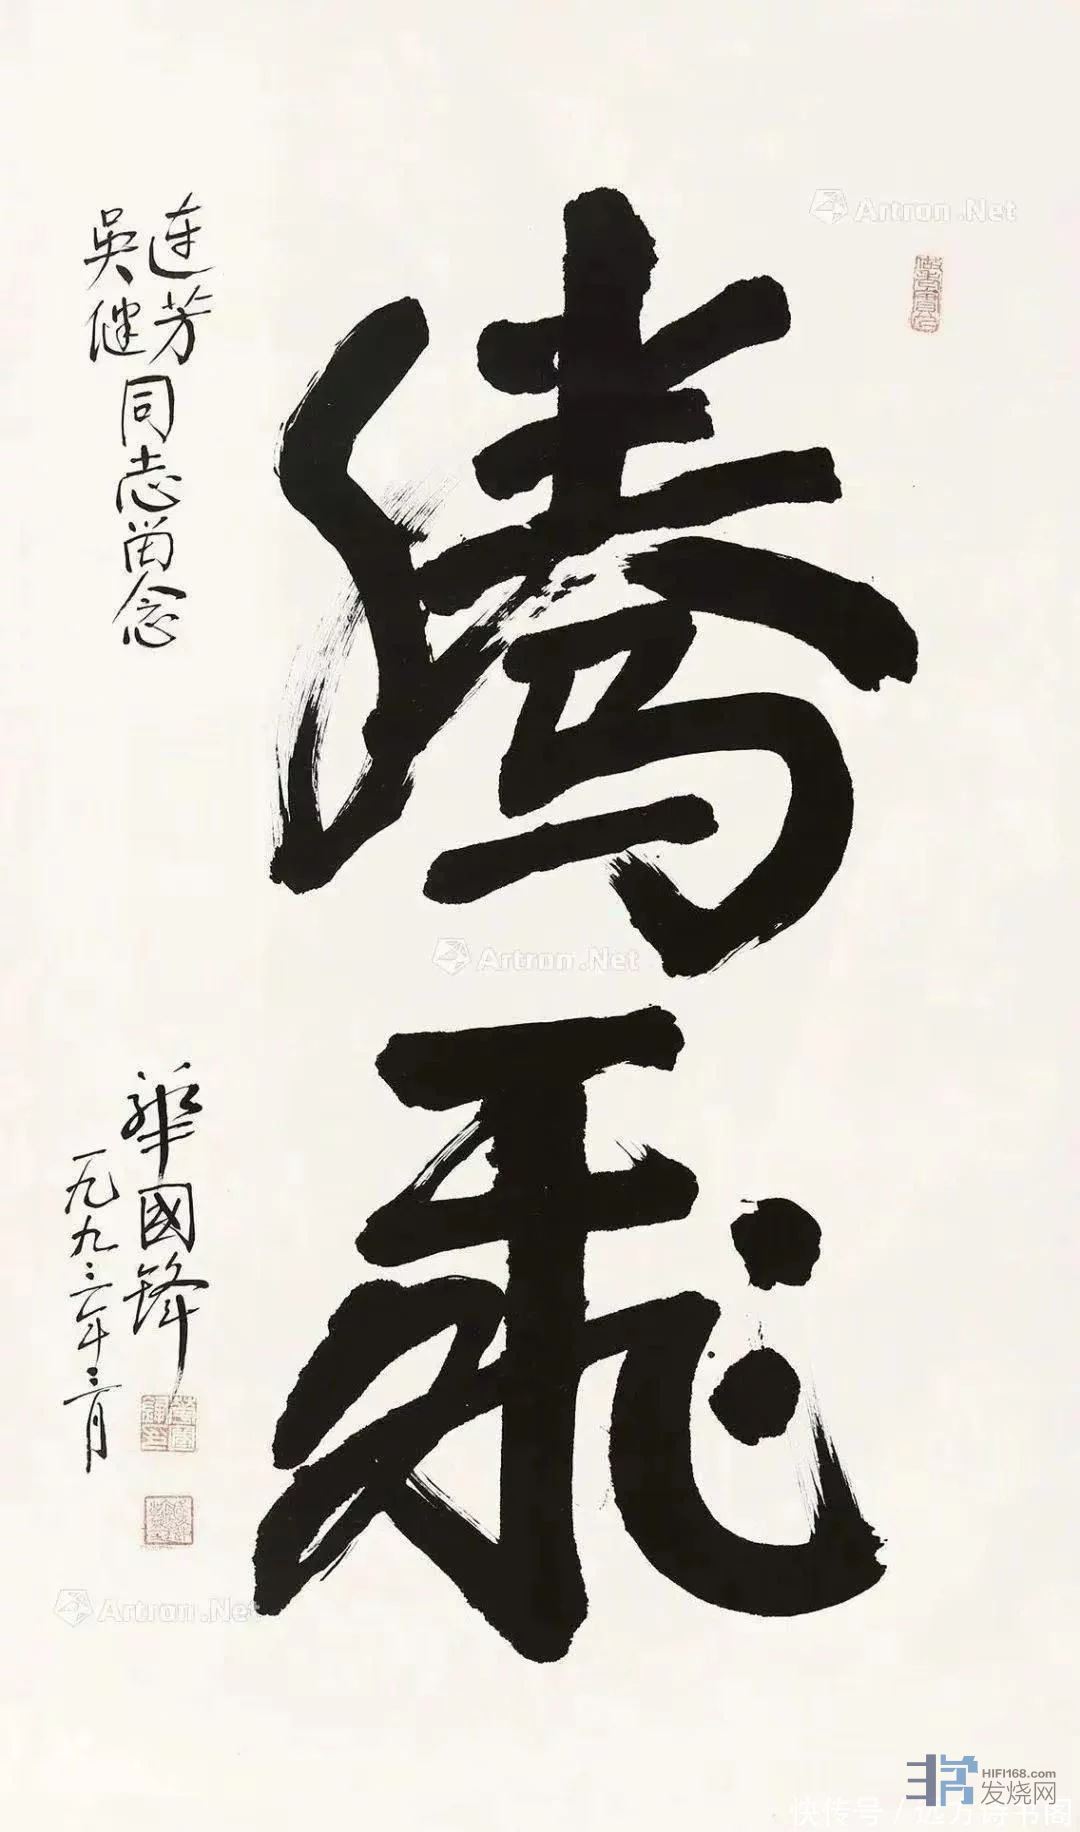 腾飞
连芳
吴健
同志留念
華國锋
一九九三年三月
Artron.Net
Artron.Net
Artron.Net
HIFI168.com
发烧网
快传号 / 远方诗书阁